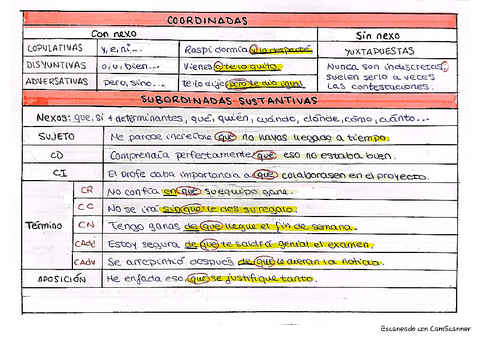 COORDINADAS
Con nexo
Sin nexo
COPULATIVAS y, e, ni...
Raspi dormía y la desperté
YUXTAPUESTAS
DISYUNTIVAS o, u, bien...
Vienes o te lo quito.
Nunca son indiscretas,
suelen serlo a veces
las contestaciones.
ADVERSATIVAS pero, sino...
te lo dije pero te dio igual
SUBORDINADAS SUSTANTIVAS
Nexos: que, si + determinantes, qué, quién, cuándo, dónde, cómo, cuánto...
SUJETO Me parece increíble que no hayas llegado a tiempo.
CD Comprendía perfectamente que eso no estaba bien.
CI El profe daba importancia a que colaborasen en el proyecto.
Término
CR No confía en que su equipo gane.
CC No se irá sin que le des su regalo.
CN Tengo ganas de que llegue el fin de semana.
CAdj Estoy segura de que te saldrá genial el examen.
CAdv Se arrepintió después de que le dieran la noticia.
APOSICIÓN Me enfada eso, que se justifique tanto.
Escaneado con CamScanner